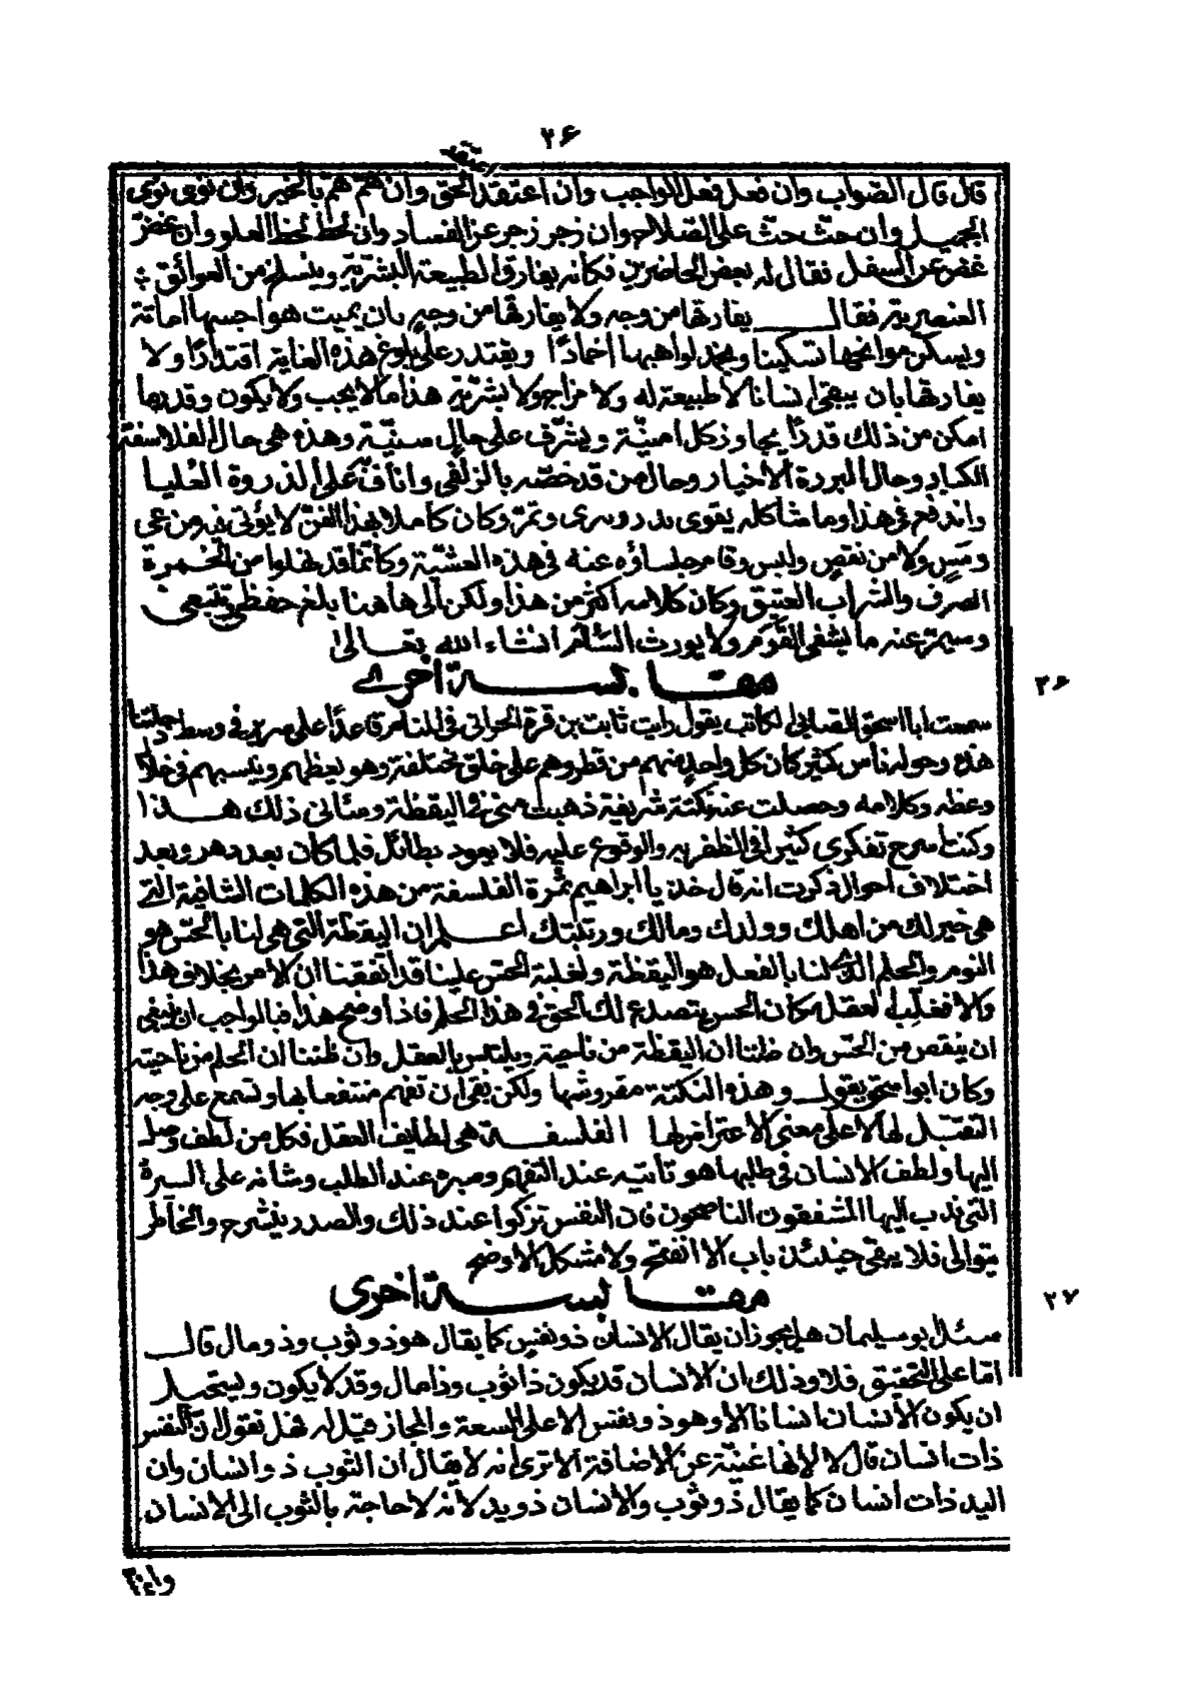 ٢٦
قال قال الصواب وان فعل فعل الواجب وان اعتقد اعتقد الحق وان هم هم بالخير وان نوى نوى
الجميل وان حث حث على الصلاح وان زجر زجر عن الفساد وان لحظ لحظ العلو وان غض
غض عن السفل فقال له بعض الحاضرين فكانه يفارق الطبيعة البشرية وينسلخ من العوائق
العنصرية فقال يفارقها من وجه ولا يفارقها من وجه بان يميت هواجسها اماتة
ويسكن موانجها تسكينا ويخمد لواهبها اخمادًا ويقتدر على بلوغ هذه الغاية اقتدارًا ولا
يفارقها بان يبقى انسانا لا طبيعة له ولا مزاج ولا بشرية هذا مالا يجب ولا يكون وقد بها
امكن من ذلك قدرًا يجاوز كل امنية ويشرف على حال سنية وهذه هي حال الفلاسفة
الكبار وحال البررة الأخيار وحال من قد خصه بالزلفى واناف على الذروة العليا
واندفع في هذا وما شاكله يقوى وكان كاملا بهذا الفن لا يؤتى فيه من عى
ولا من نقص ولبس وقام جلساؤه عنه في هذه العشية وكانما قد نهلوا من الخمرة
الصرف والشراب العتيق وكان كلامه اكثر من هذا ولكن الى هاهنا بلغ حفظى وتتبعى
وسيمر عنه ما يشفى القوم ولا يورث السأم انشاء الله تعالى
مقابسة اخرى
٢٦
سمعت أبا اسحق الصابى الكاتب يقول رايت ثابت بن قرة الحرانى في المنام قاعدًا على سرير في وسط دجلتنا
هذه وحوله ناس كثير كان كل واحد منهم من قطر وهم على خلق مختلفة وهو يعظهم ويتبسم في خلال
وعظه وكلامه وحصلت عنه نكتة شريفة ذهبت منى في اليقظة وسئانى ذلك هذا
وكنت اسرح تفكرى كثيرا في الظفر به والوقوع عليه فلا يعود بطائل فلما كان بعد دهر وبعد
اختلاف احوال ذكرت انه قال خذ يا ابراهيم ثمرة الفلسفة من هذه الكلمات الشافية التى
هى خير لك من اهلك وولدك ومالك ورتبتك اعلم ان اليقظة التى هى لنا بالحس هو
النوم والحلم الذى لنا بالفعل هو اليقظة ولغلبة الحس علينا قد اتفقنا ان الامر بخلاف هذا
والا فغلب العقل مكان الحس يتصدع لك الحق في هذا الحلم فاذا وضح هذا فبالواجب ان ينبغى
ان ينقص من الحس وان ظننا ان اليقظة من ناحيته ويلتبس بالعقل وان ظننا ان الحلم من ناحيته
وكان ابو اسحق يقول وهذه النكتة مفروشها ولكن بقى ان تفهم منتفعا بها وتسمع على وجه
التقبل لها لا على معنى الاعتراض لها الفلسفة هى لطايف العقل فكل من لطف وصل
اليها ولطف الانسان في طلبها هو تأتيه عند التفهم وصبره عند الطلب وشانه على السرة
التى ندب اليها المشفقون الناصحون فان النفس تزكوا عند ذلك والصدر ينشرح والخاطر
يتوالى فلا يبقى حينئذ باب الا انفتح ولا مشكل الا وضح
مقابسة أخرى
٢٧
سئل ابو سليمان هل يجوز ان يقال الانسان ذو نفس كما يقال هو ذو ثوب وذو مال قال
امّا على التحقيق فلا وذلك ان الانسان قد يكون ذا ثوب وذا مال وقد لا يكون ويستحيل
ان يكون الانسان انسانا الا وهو ذو نفس الا على السعة والمجاز قيل له فهل نقول ان النفس
ذات انسان قال لا لانها غنية عن الاضافة الا ترى انه لا يقال أن الثوب ذو انسان وان
اليد ذات أنسان كما يقال ذو ثوب والانسان ذو يد لانه لا حاجة بالثوب الى الانسان